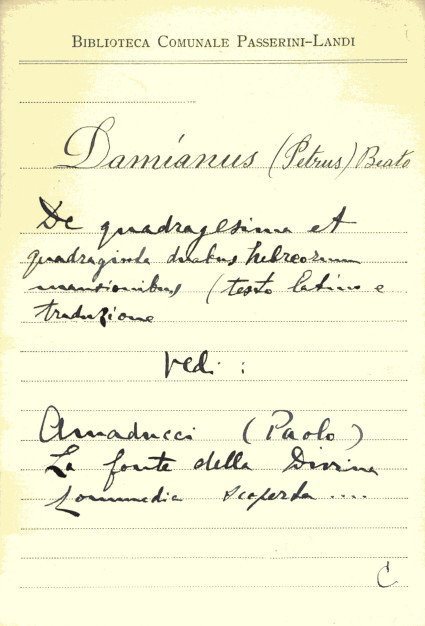 BIBLIOTECA COMUNALE PASSERINI-LANDI
Damianus (Petrus) Beato
De quadragesima et
quadraginta duabus hebreorum
mansionibus (testo latino e
traduzione
vedi :
Amaducci (Paolo)
La fonte della Divina
Commedia scoperta ....
C